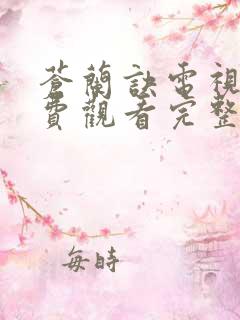 蒼蘭訣電視
費觀看完整
每時